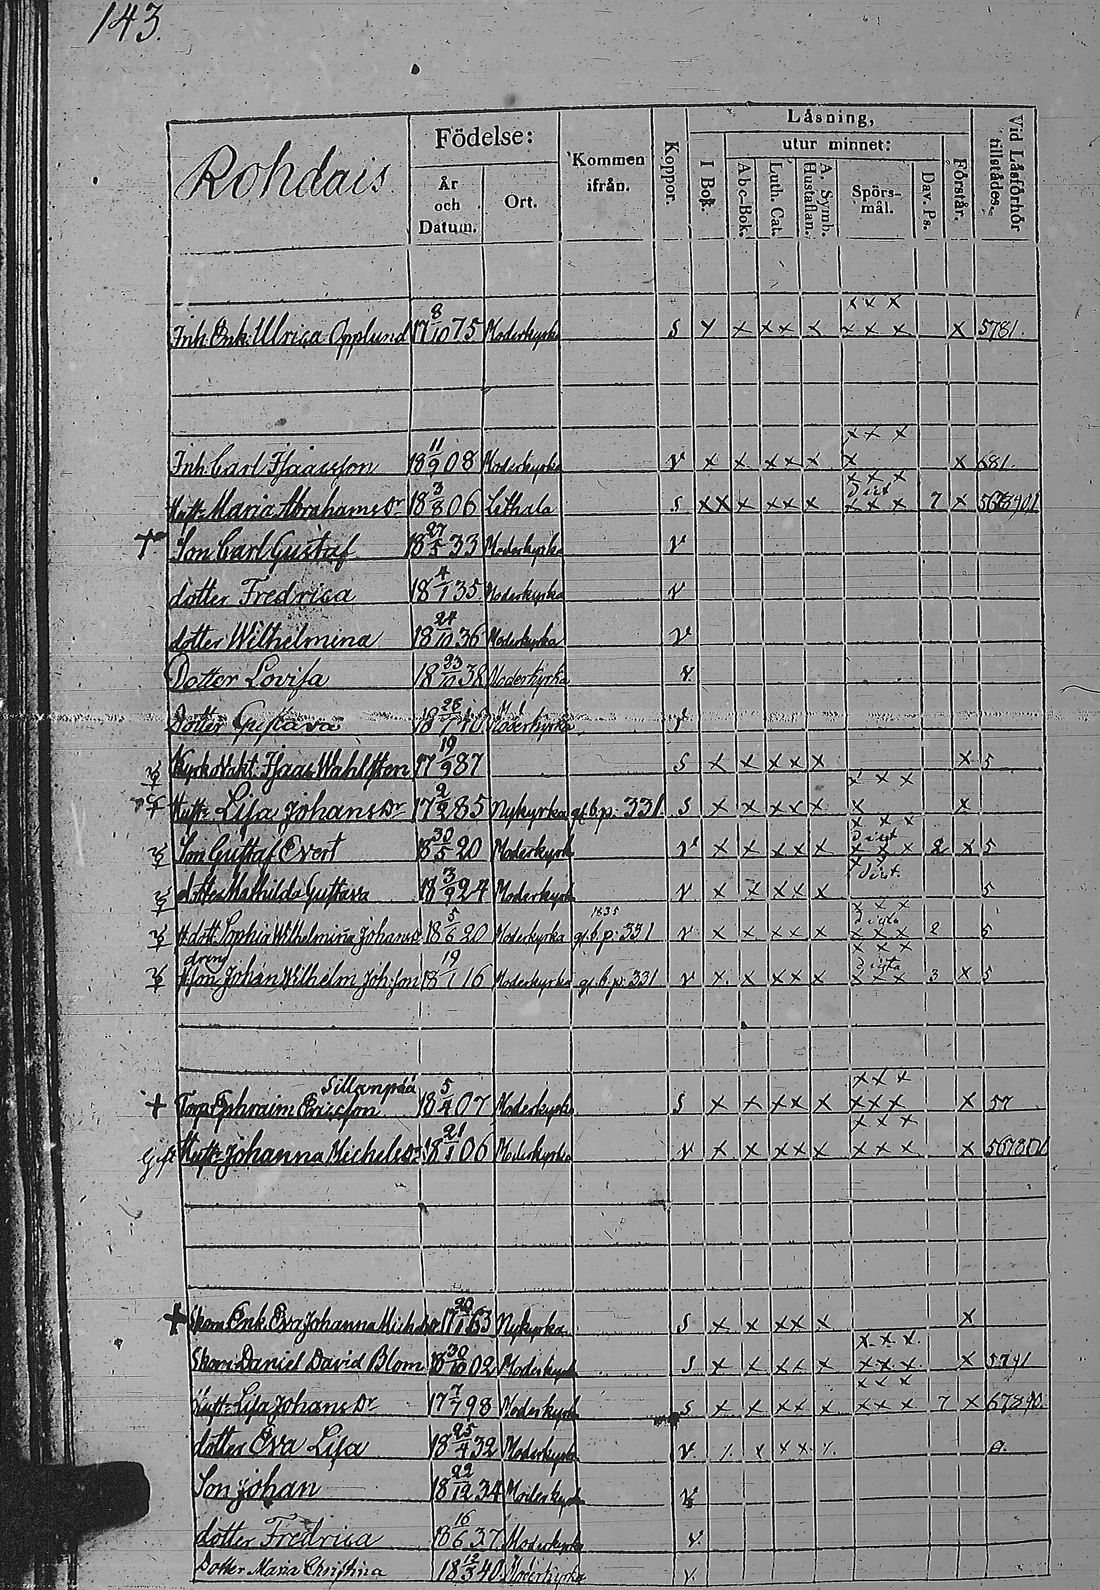 143.
Rohdais
Födelse:
År och Datum.
Ort.
Kommen ifrån.
Koppor.
Låsning,
I Bok.
utur minnet:
Abc-Bok.
Luth. Cat.
A. Symb. Hustaflan.
Spörs-mål.
Dav. Ps.
Förstår.
Vid Läsförhör tillstädes.
x x x
Inh. Enk. Ulrica Opplund 17 8/10 75 Moderkyrk S x x x x x x x x x 5781.
x x x
Inh. Carl Isaacsson 18 11/9 08 Moderkyrka v x x x x x x x 681.
x x x
Hust. Maria Abrahams Dr 18 3/8 06 Lethala S x x x x x x x x x 7 x
Son Carl Gustaf 18 27/5 33 Moderkyrka v
dotter Fredrica 18 4/1 35 Moderkyrka v
dotter Wilhelmina 18 24/10 36 Moderkyrka v
Dotter Lovisa 18 23/10 38 Moderkyrka v
Dotter Gustava 18 26/7 Moderkyrka v
Kyrkovakt. Isaac Wahlsten 17 19/9 87 S x x x x x x 5
x x x
Hust. Lisa Johans Dr 17 2/2 85 Nykyrka gl.b.p. 331. S x x x x x x x
x x x
Son Gustaf Evert 18 30/5 20 Moderkyrk v x x x x x x x x 2 x 5
dotter Mathilda Gustava 18 3/9 24 Moderkyrk v x x x x x 5
x x x
1835
dott. Sophia Wilhelmina Johans 18 5/6 20 Moderkyrka gl.b.p. 331 v x x x x x x x x 2 5
x x x
dreng
son Johan Wilhelm Joh:son 18 19/1 16 Moderkyrka gl.b.p. 331 v x x x x x x x x 3 x 5
Sillanpää
x x x
+ Torp. Ephraim Ericsson 18 5/4 07 Moderkyrk S x x x x x x x x x 57
x x x
Gift Hust. Johanna Michels Dr 18 21/1 06 Moderkyrka v x x x x x x x x x
+ Skom. Enk. Eva Johanna Michels Dr 17 20/1 63 Nykyrka S x x x x x x
x x x
Skom. Daniel David Blom 18 30/10 02 Moderkyrk S x x x x x x x x x
x x x
Hust. Lisa Johans Dr 17 7/7 98 Moderkyrk S x x x x x x x x 7 x
dotter Eva Lisa 18 25/4 32 Moderkyrk v x x x x
Son Johan 18 22/12 34 Moderkyrk v
dotter Fredrica 18 16/6 37 Moderkyrka v
Dotter Maria Christina 18 12/3 40 Moderkyrka v